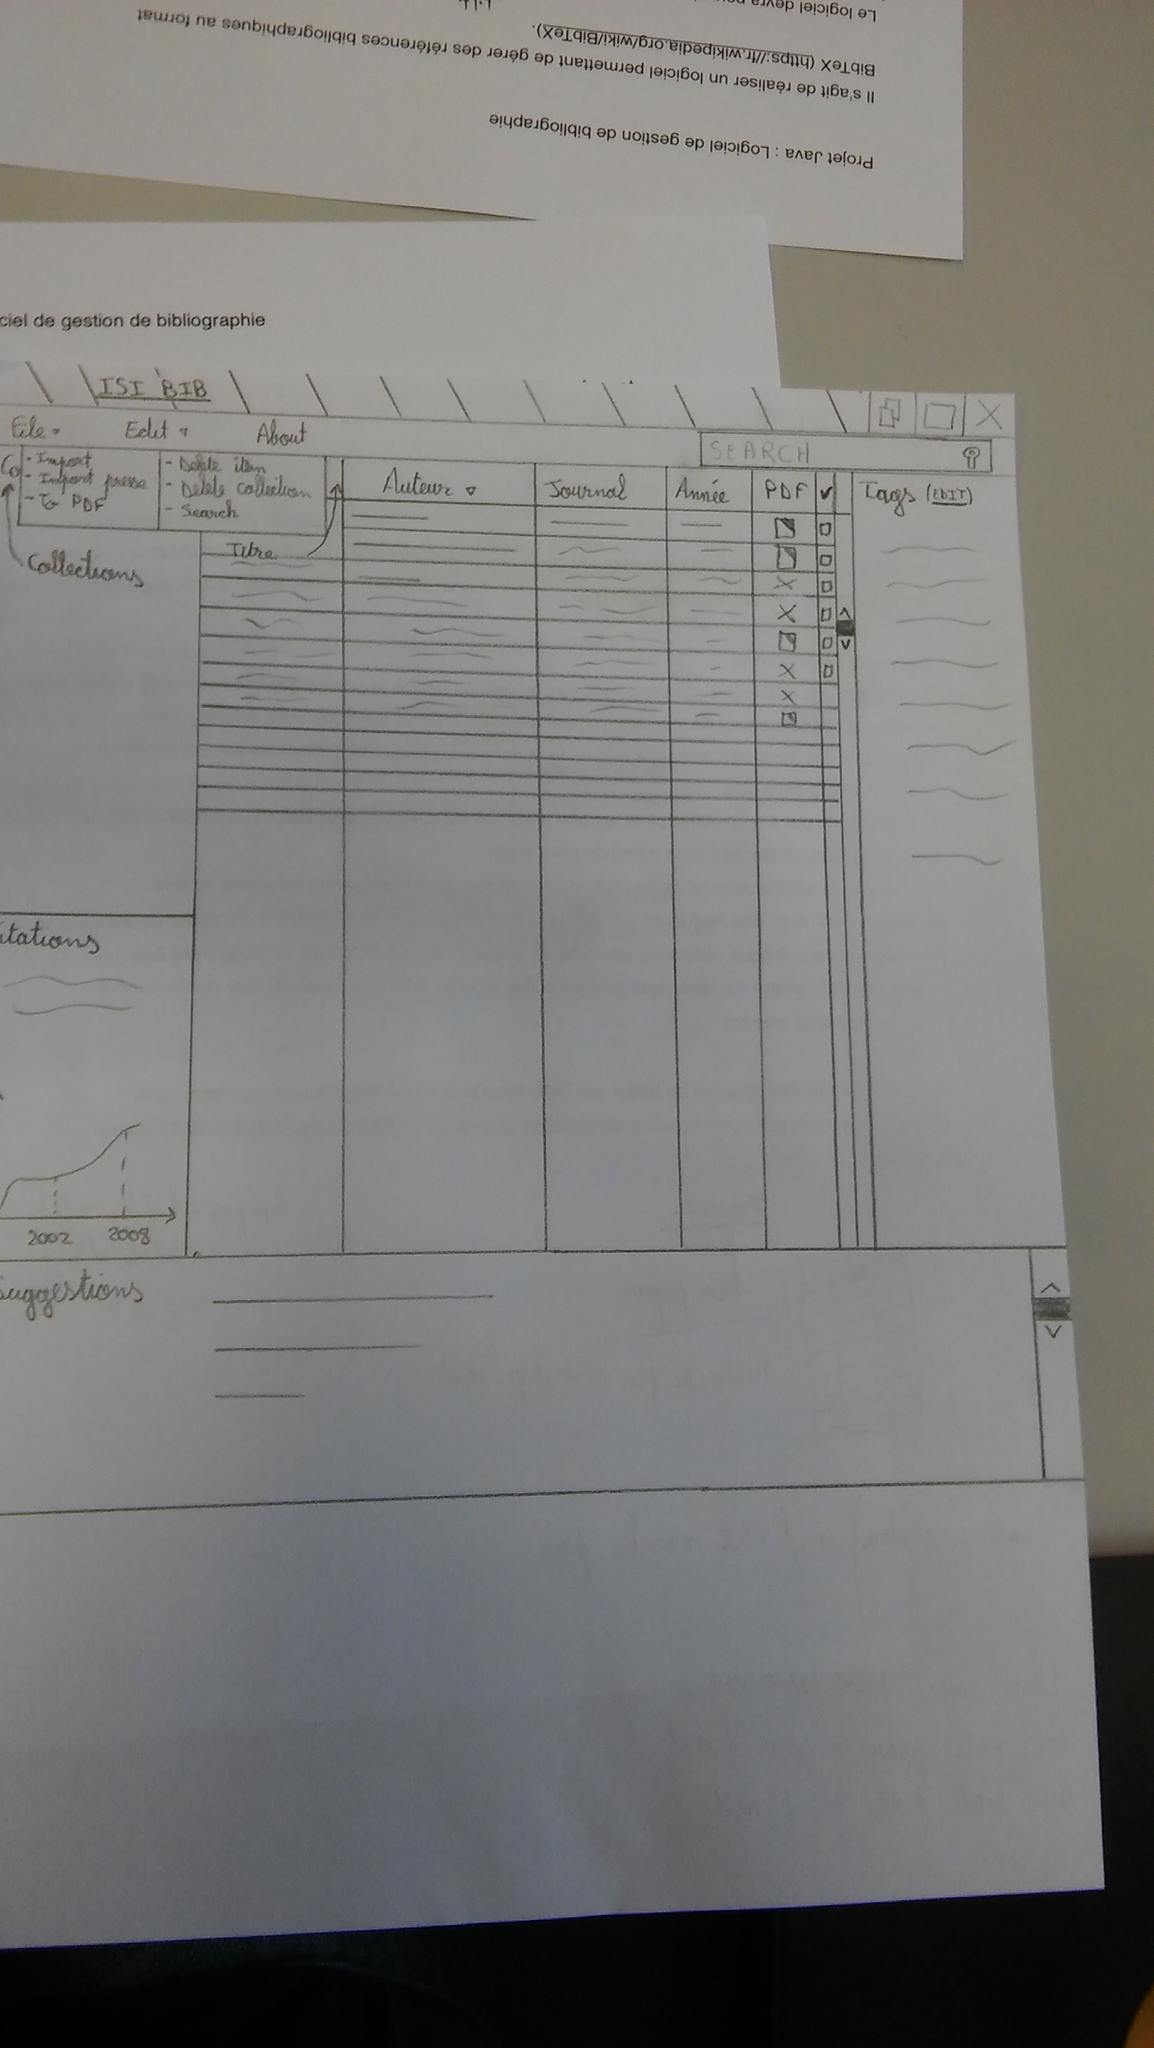 Projet Java : Logiciel de gestion de bibliographie
Il s'agit de réaliser un logiciel permettant de gérer des références bibliographiques au format
BibTeX (https://fr.wikipedia.org/wiki/BibTeX).
Le logiciel devra
ciel de gestion de bibliographie
ISI BIB
File Edit About
SEARCH
Co
- Import
- Import presse
- To PDF
- Delete item
- Delete collection
- Search
Auteur Journal Année PDF Tags (EDIT)
Titre
Collections
itations
2002 2008
Suggestions